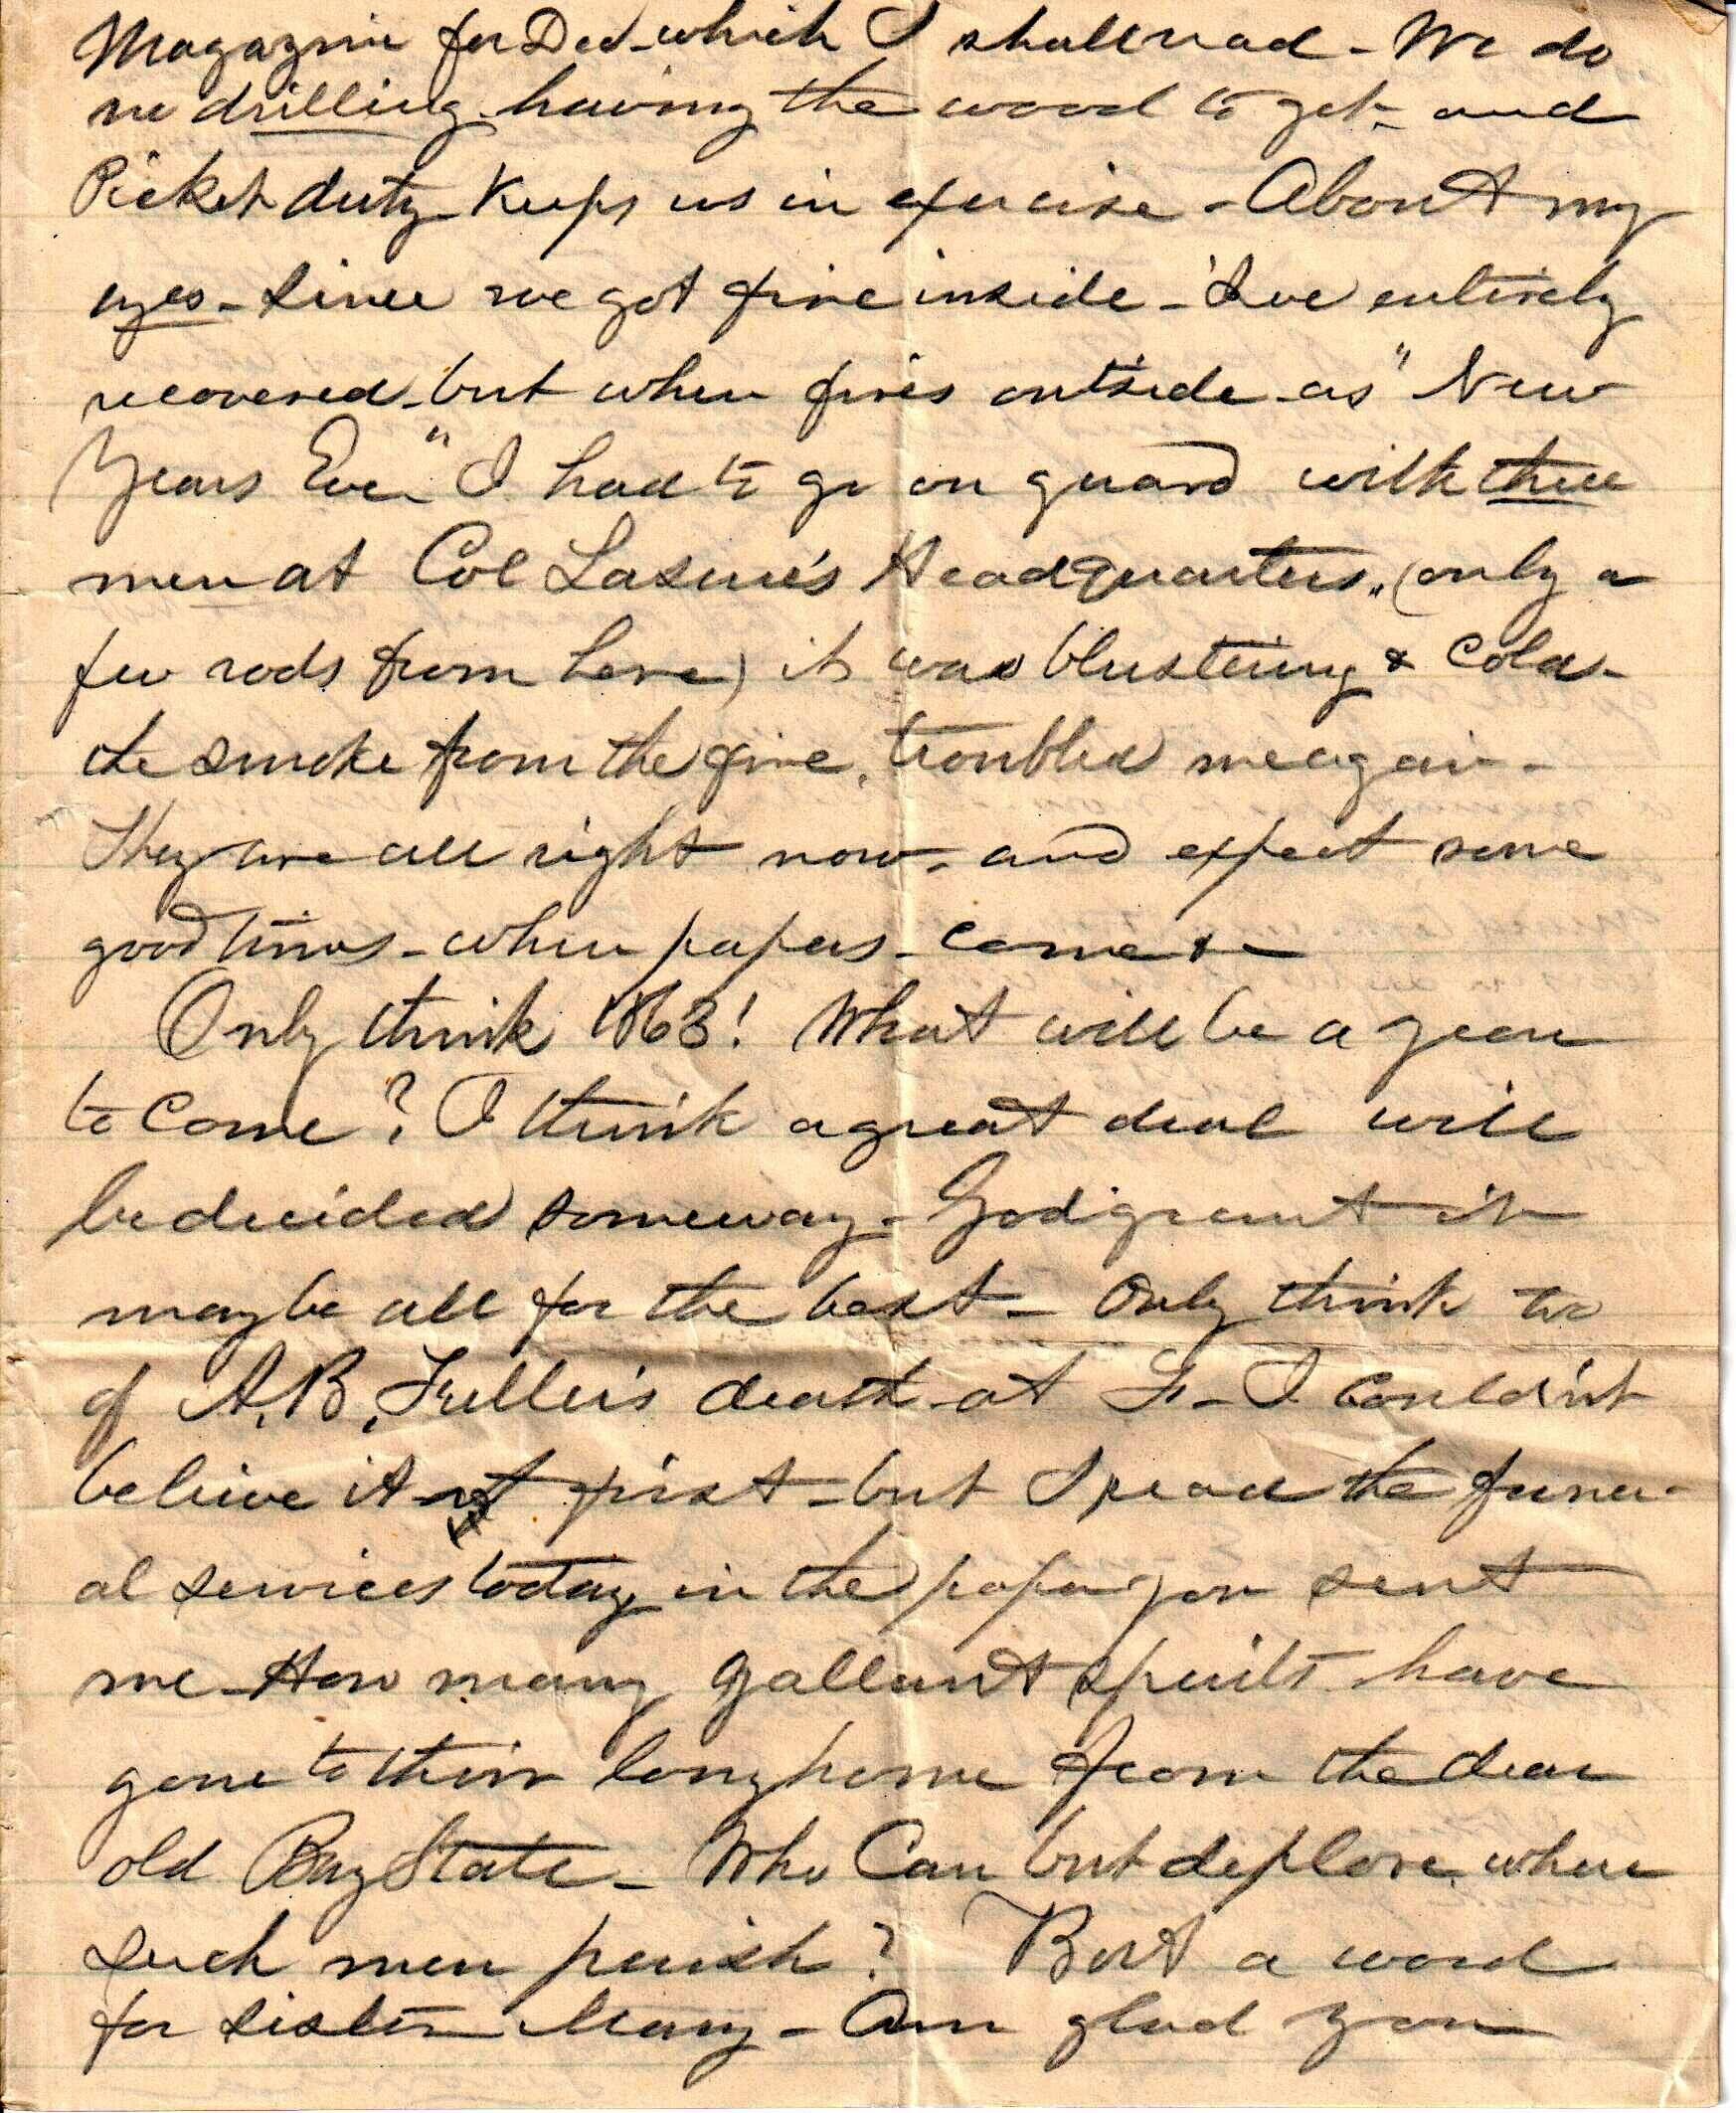 Magazine for Dec - which I shall read - We do
no drilling - having the wood to get - and
Picket duty - Keeps us in exercise - About my
eyes - since we got fire inside - I've entirely
recovered - but when fires outside - as "New
Years Eve" I had to go on guard with three
men at Col Laseur's Headquarters, (only a
few rods from here) it was blustering & Cold -
the smoke from the fire, troubled me again -
They are all right now - and expect some
good times - when papers - come + -
Only think 1863! What will be a year
to Come? I think a great deal will
be decided someway - God grant it
maybe all for the best - Only think too
of A.B. Fuller's death - at F - I couldn't
believe it at first - but I read the funer-
al services today in the paper you sent
me - How many gallant spirits have
gone to their long home from the dear
old Bay State - Who Can but deplore when
such men perish? But a word
for sister Mary - Am glad you